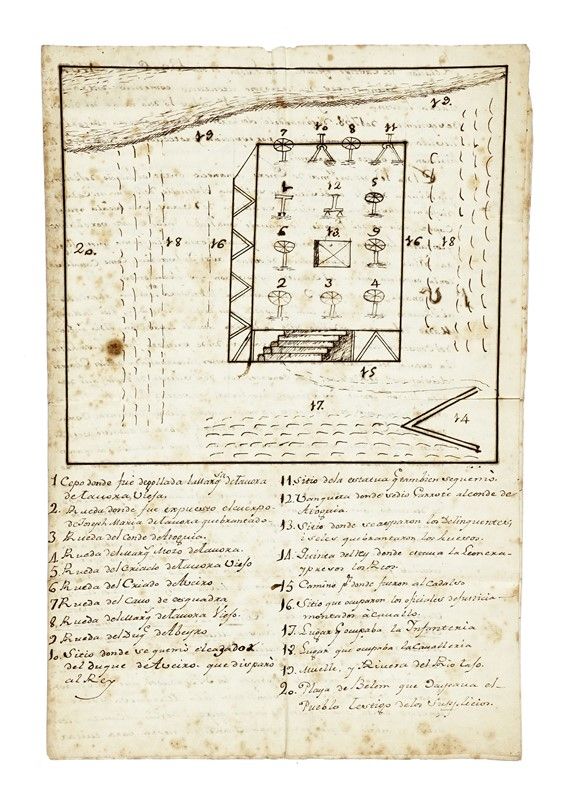 19.
19
7
10
8
11
1
12
5
20.
18
16
6
13.
9
16
18
2
3
4
15
17.
14
1 Cepo donde fué degollada la Marq.ª
de Tavora Vieja.
2. Rueda donde fue expuesto el cuerpo
de Joseph Maria de Tavora quebrantado.
3 Rueda del Conde de Atoguia.
4. Rueda del Marq.s Mozo de Tavora.
5 Rueda del Criado de Tavora Viejo
6 Rueda del Criado de Aveiro.
7 Rueda del Cavo de esquadra
8 Rueda del Marq.s de Tavora Viejo.
9 Rueda del Duq.e de
10 Sitio donde se quemó el
del Duque de Aveiro. que disparó
al Rey
11 Sitio de la estatua q tambien se quemó.
12. Vanqueta donde se dio Garrote al conde de
Atoguia.
13. Sitio donde se asparon los Delinquentes,
i se les quebrantaron los huesos.
14 Quinta del Rey donde estava la Leonera
y presos los Reos.
15 Camino p.r donde fueron al Cadalso
16 Sitio que ocuparon los oficiales de Justicia
montados à Cavallo.
17. Lugar q ocupaba la Infanteria
18 Lugar que ocupaba la Cavalleria
19. Muelle, y Rivera del Rio Tajo.
20. Playa de Belem que Ocupava el
Pueblo testigo de los Supplicios.